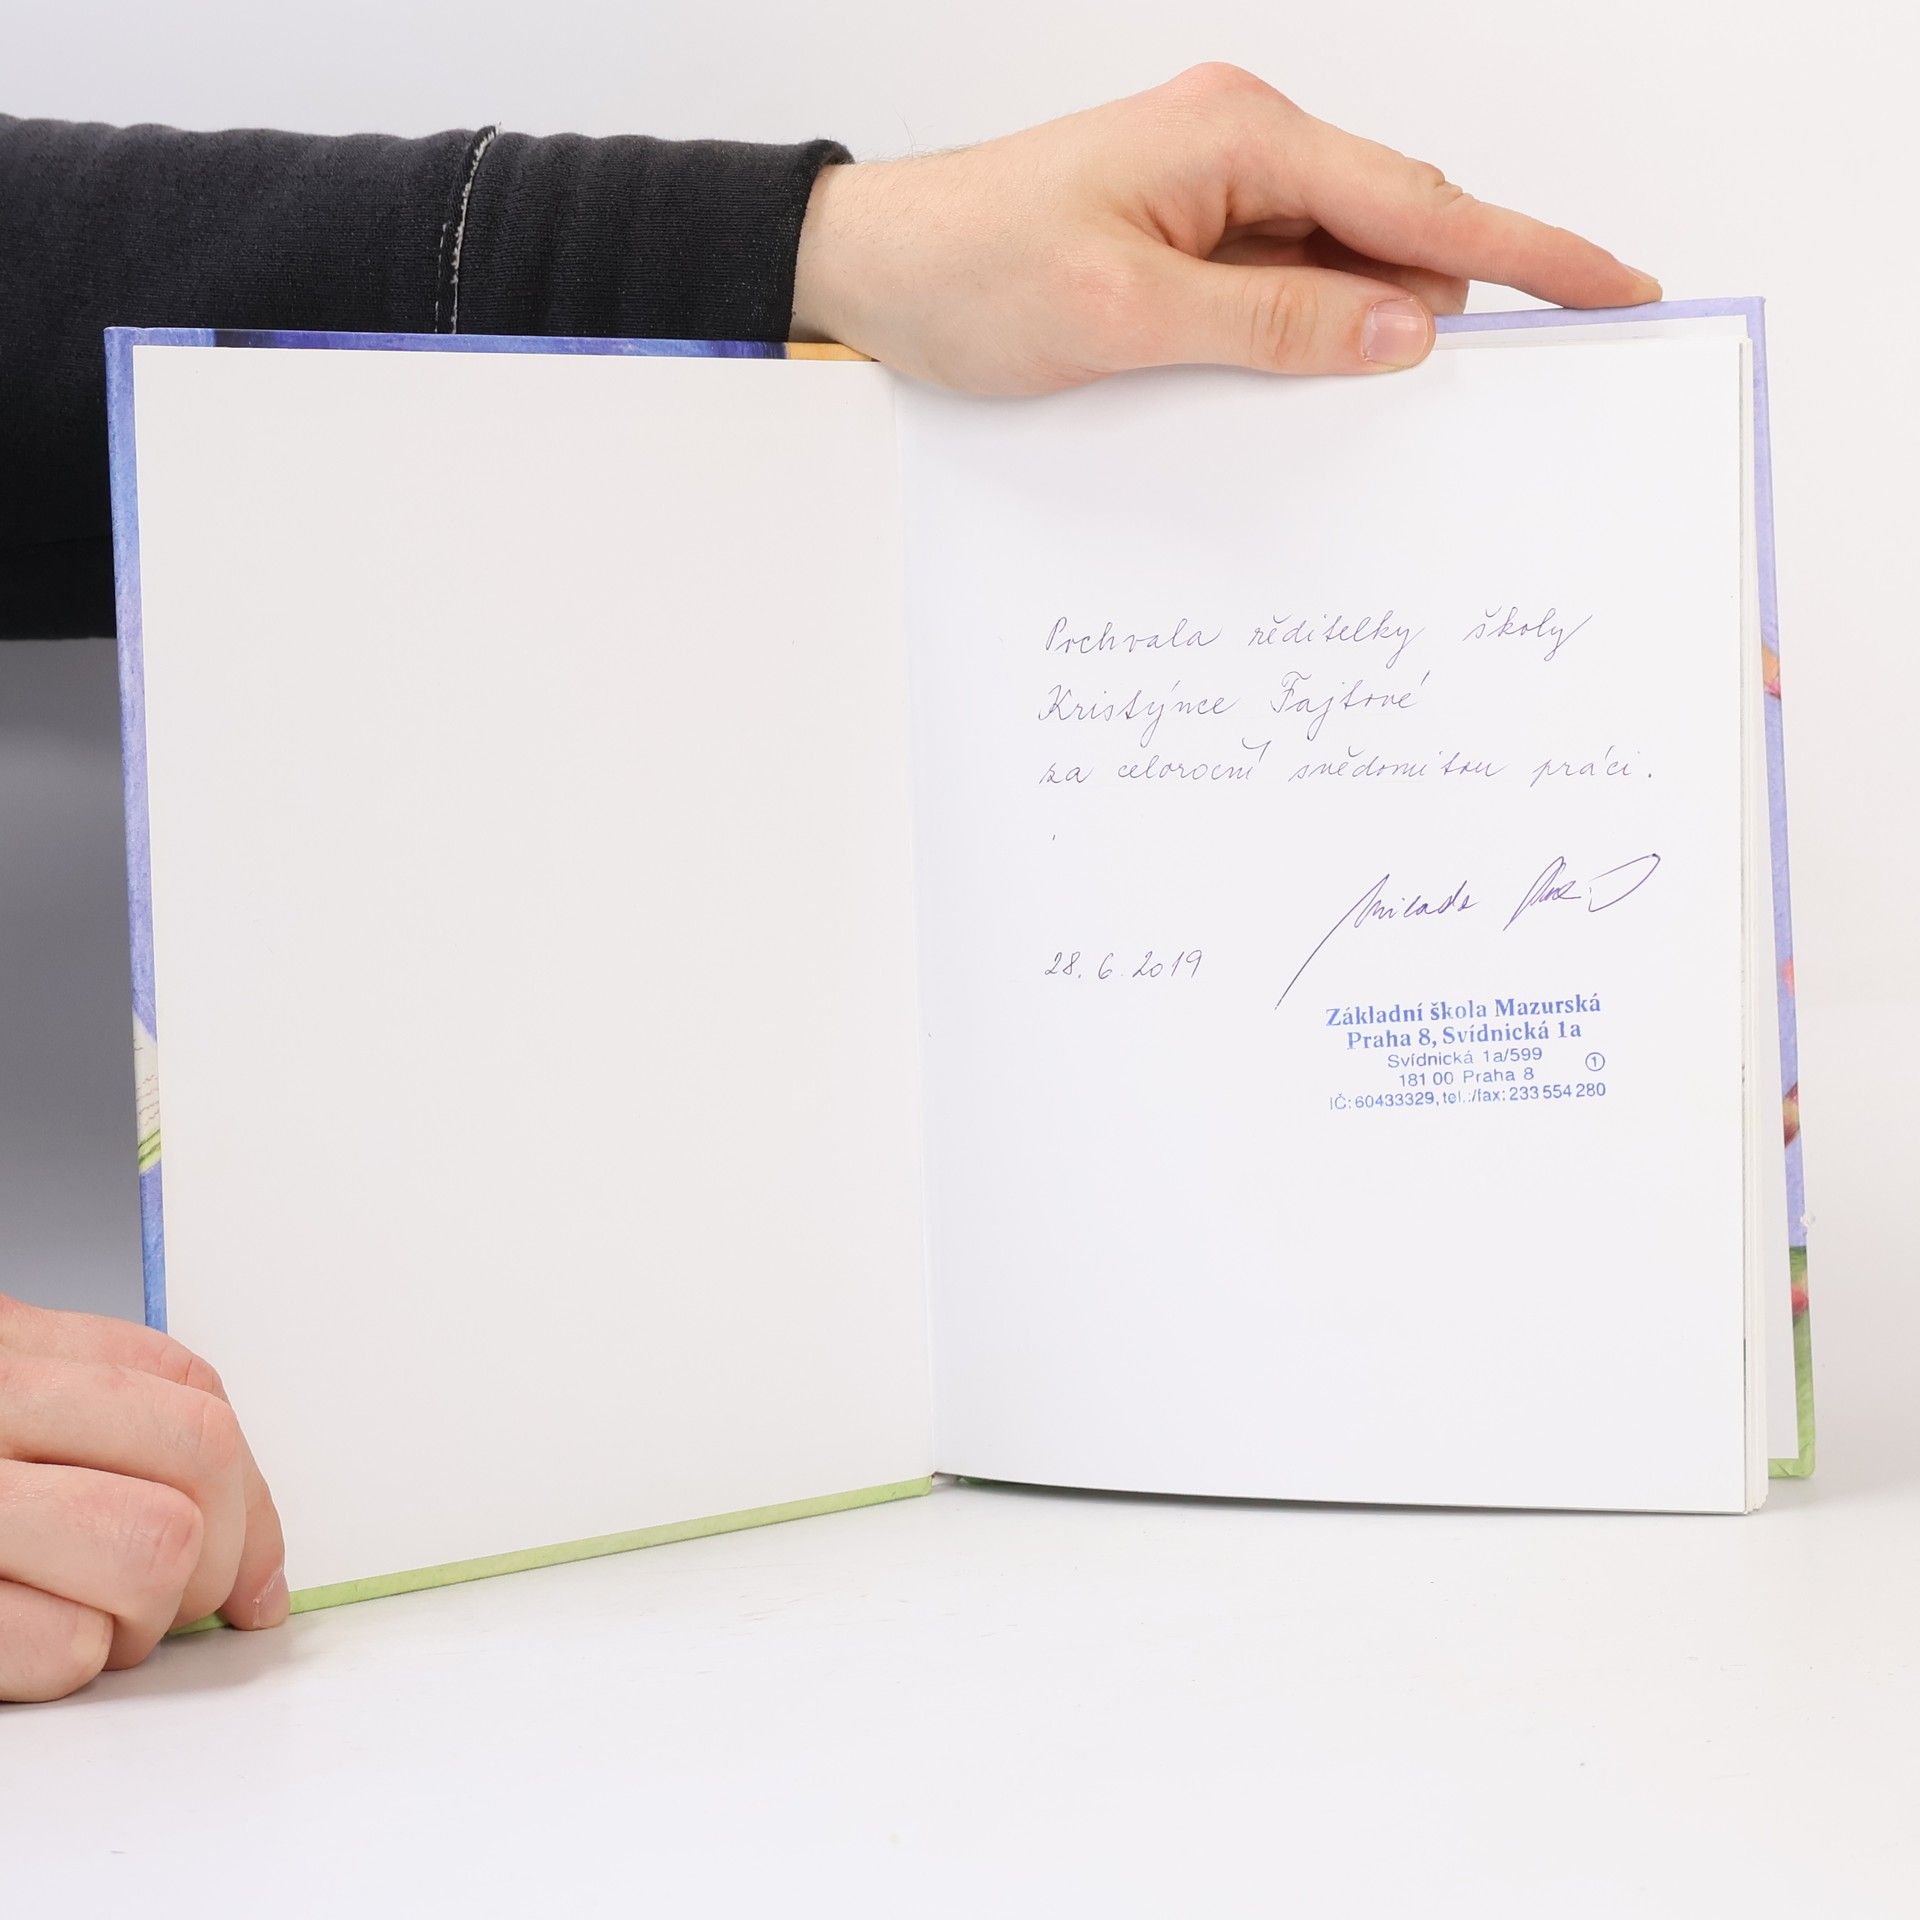 Pochvala ředitelky školy
Kristýnce Fajtové
za celoroční svědomitou práci.
Milada
28. 6. 2019
Základní škola Mazurská
Praha 8, Svídnická 1a
Svídnická 1a/599 1
181 00 Praha 8
IČ: 60433329, tel.:/fax: 233 554 280